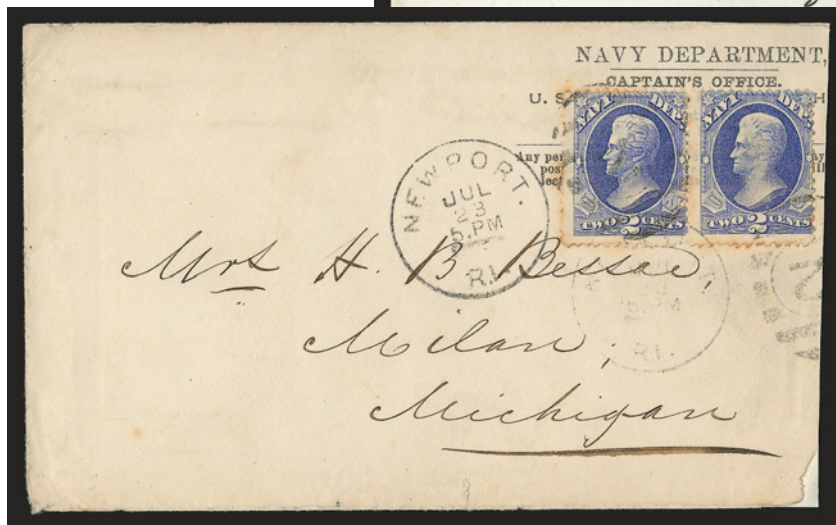 NAVY DEPARTMENT,
CAPTAIN'S OFFICE.
U. S.
H
Any
post
ject
NAVY DEP'T.
TWO 2 CENTS
NAVY DEP'T.
TWO 2 CENTS
NEWPORT.
JUL
23
5 PM
R.I.
Mrs H. B. Bessac,
Milan,
Michigan
PM
R.I.